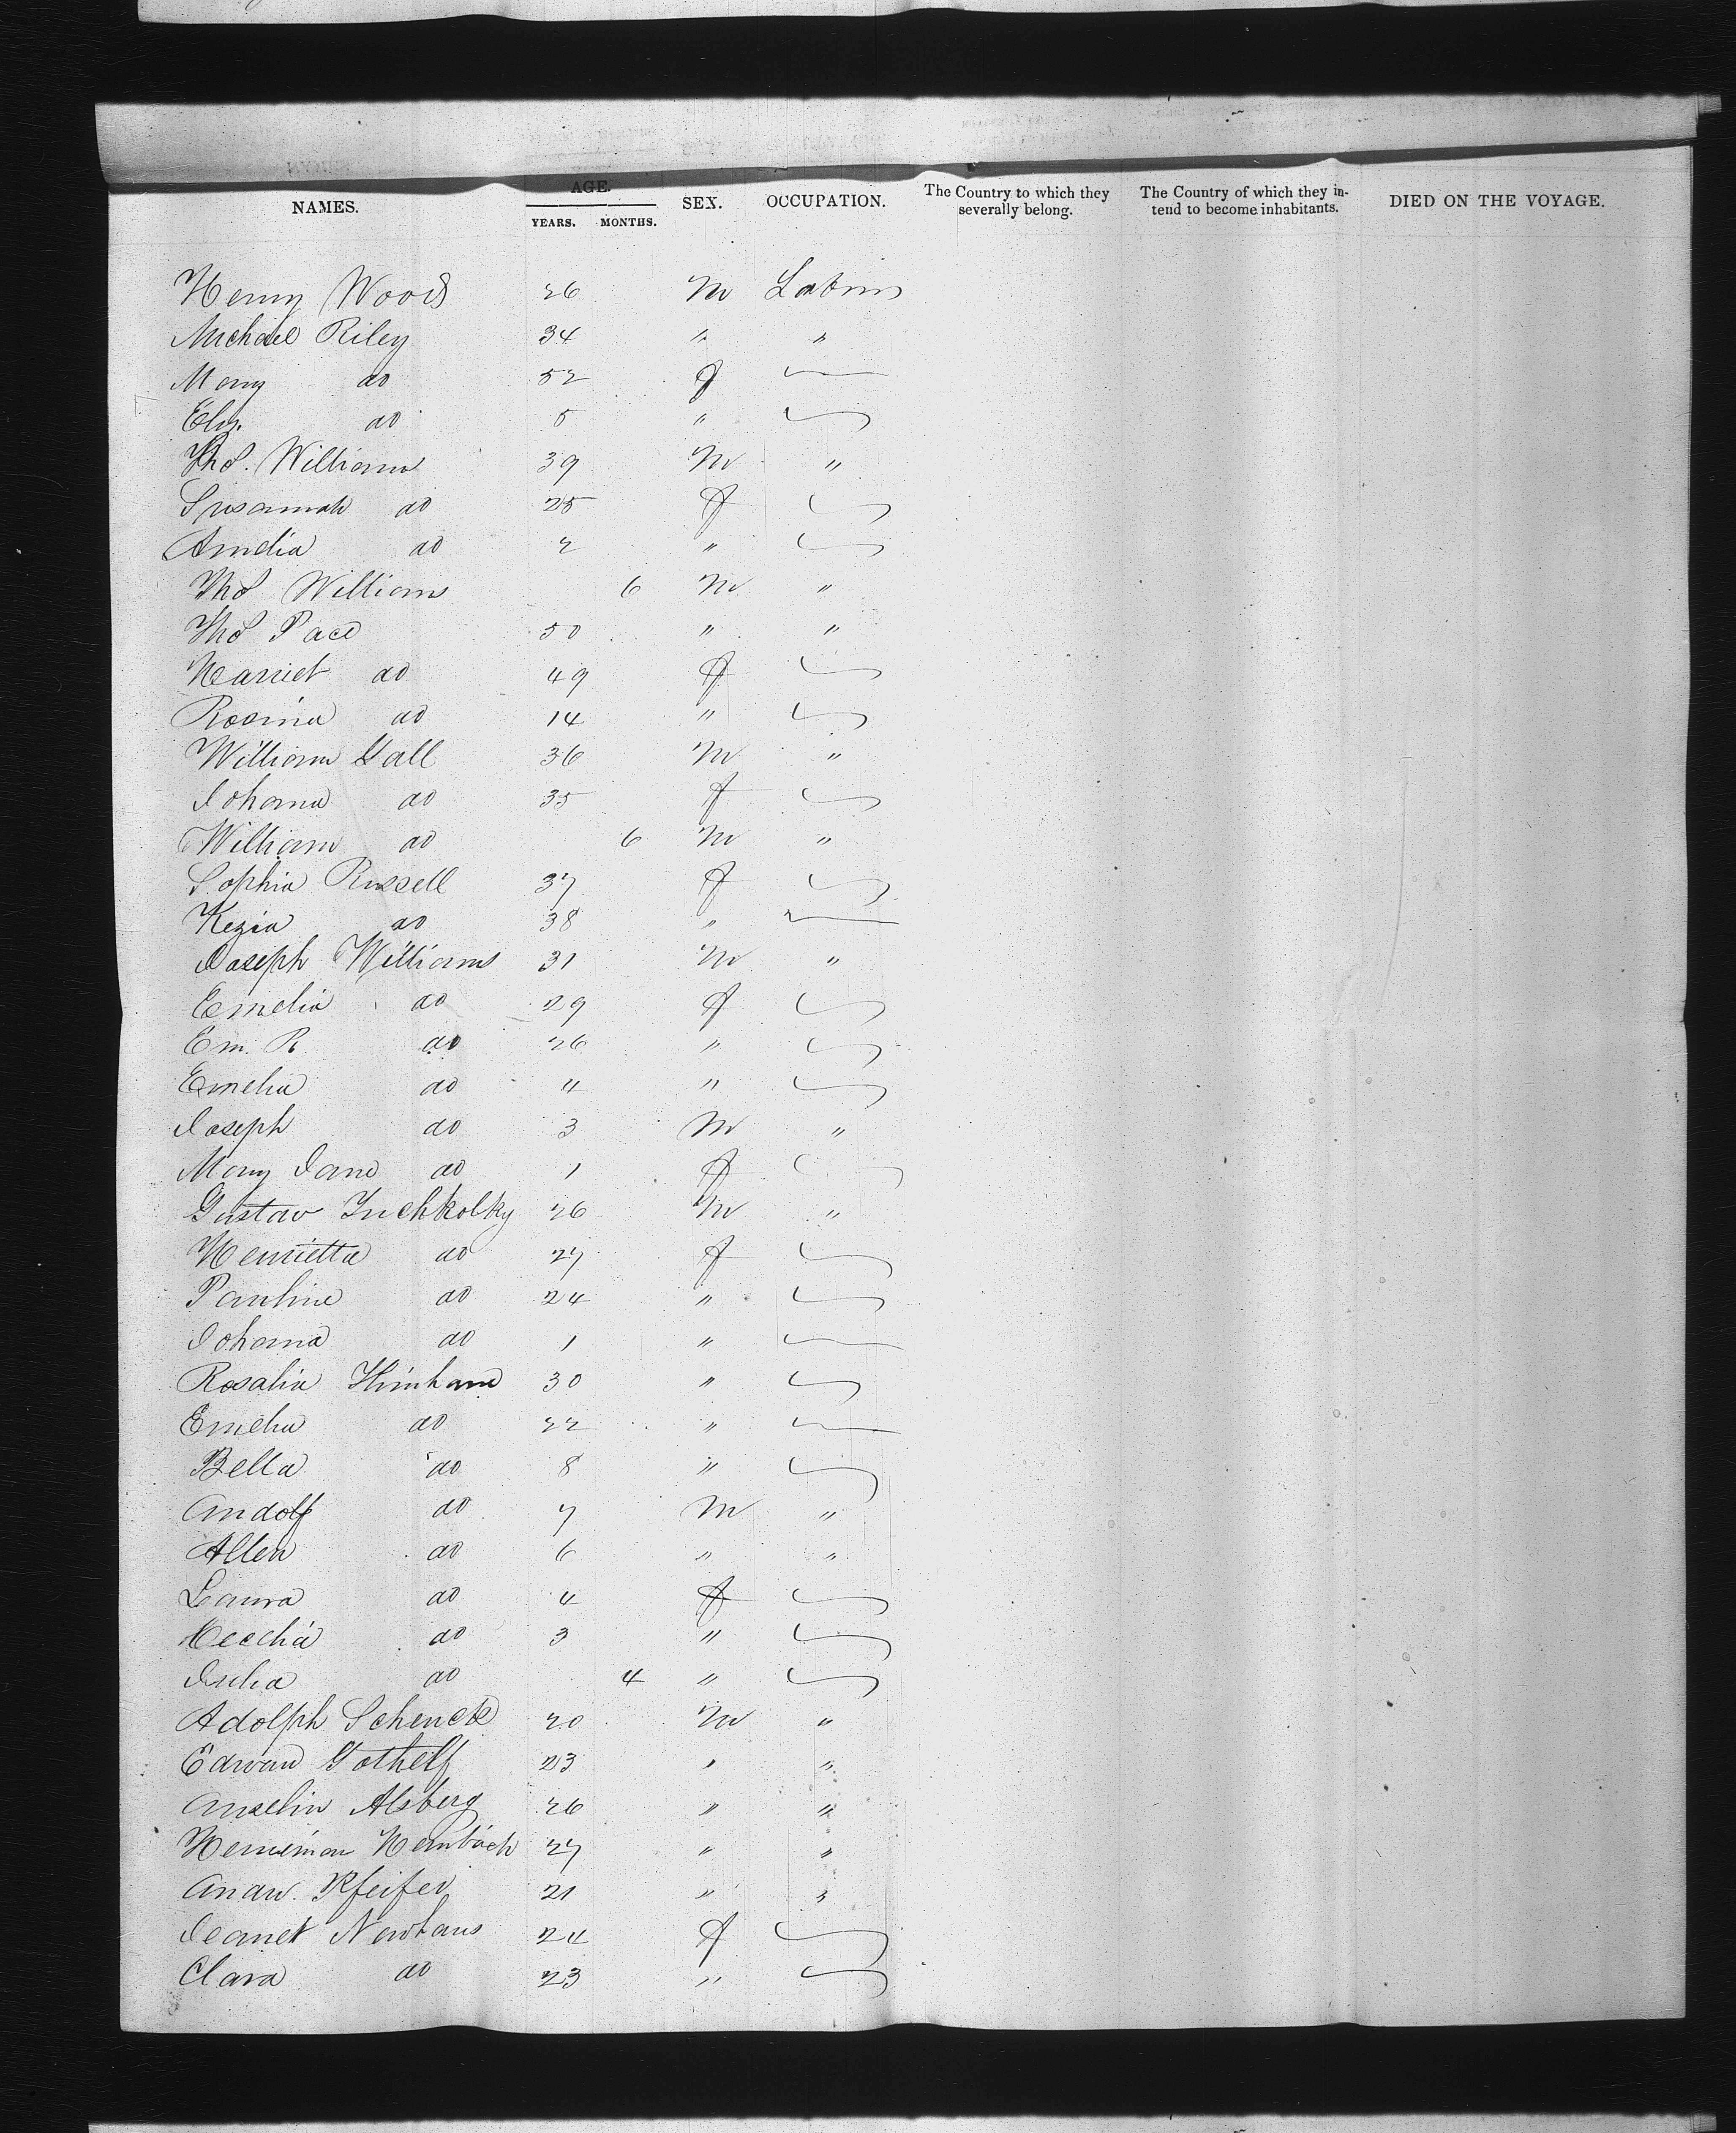 NAMES. AGE. YEARS. MONTHS. SEX. OCCUPATION. The Country to which they severally belong. The Country of which they intend to become inhabitants. DIED ON THE VOYAGE.
Henry Woods 26 M
Michael Riley 34 " "
Mary do 52 f
Eliz. do 5 "
Tho^s. Williams 39 M "
Susannah do 25 f
Amelia do 2 "
Tho^s Williams 6 M "
Tho^s Pace 50 " "
Harriet do 49 f
Rosina do 14 "
William Gall 36 M "
Johanna do 35 f
William do 6 M "
Sophia Russell 37 f
Kezia do 38 "
Joseph Williams 31 M "
Emelia do 29 f
Em. R. do 26 "
Emelia do 4 "
Joseph do 3 M "
Mary Jane do 1 f
Gustav 26 M "
Henrietta do 27 f
Pauline do 24 "
Johanna do 1 "
Rosalia 30 "
Emelia do 22 "
Bella do 8 "
Andolf do 7 M "
Allen do 6 " "
Laura do 4 f
Cecelia do 3 "
Julia do 4 "
Adolph Schenck 20 M "
Edward Gothelf 23 " "
Anselin Alsberg 26 " "
Herrman Hembach 27 " "
Andw. Pfeifer 21 " "
Jeanet Newhaus 24 f
Clara do 23 "